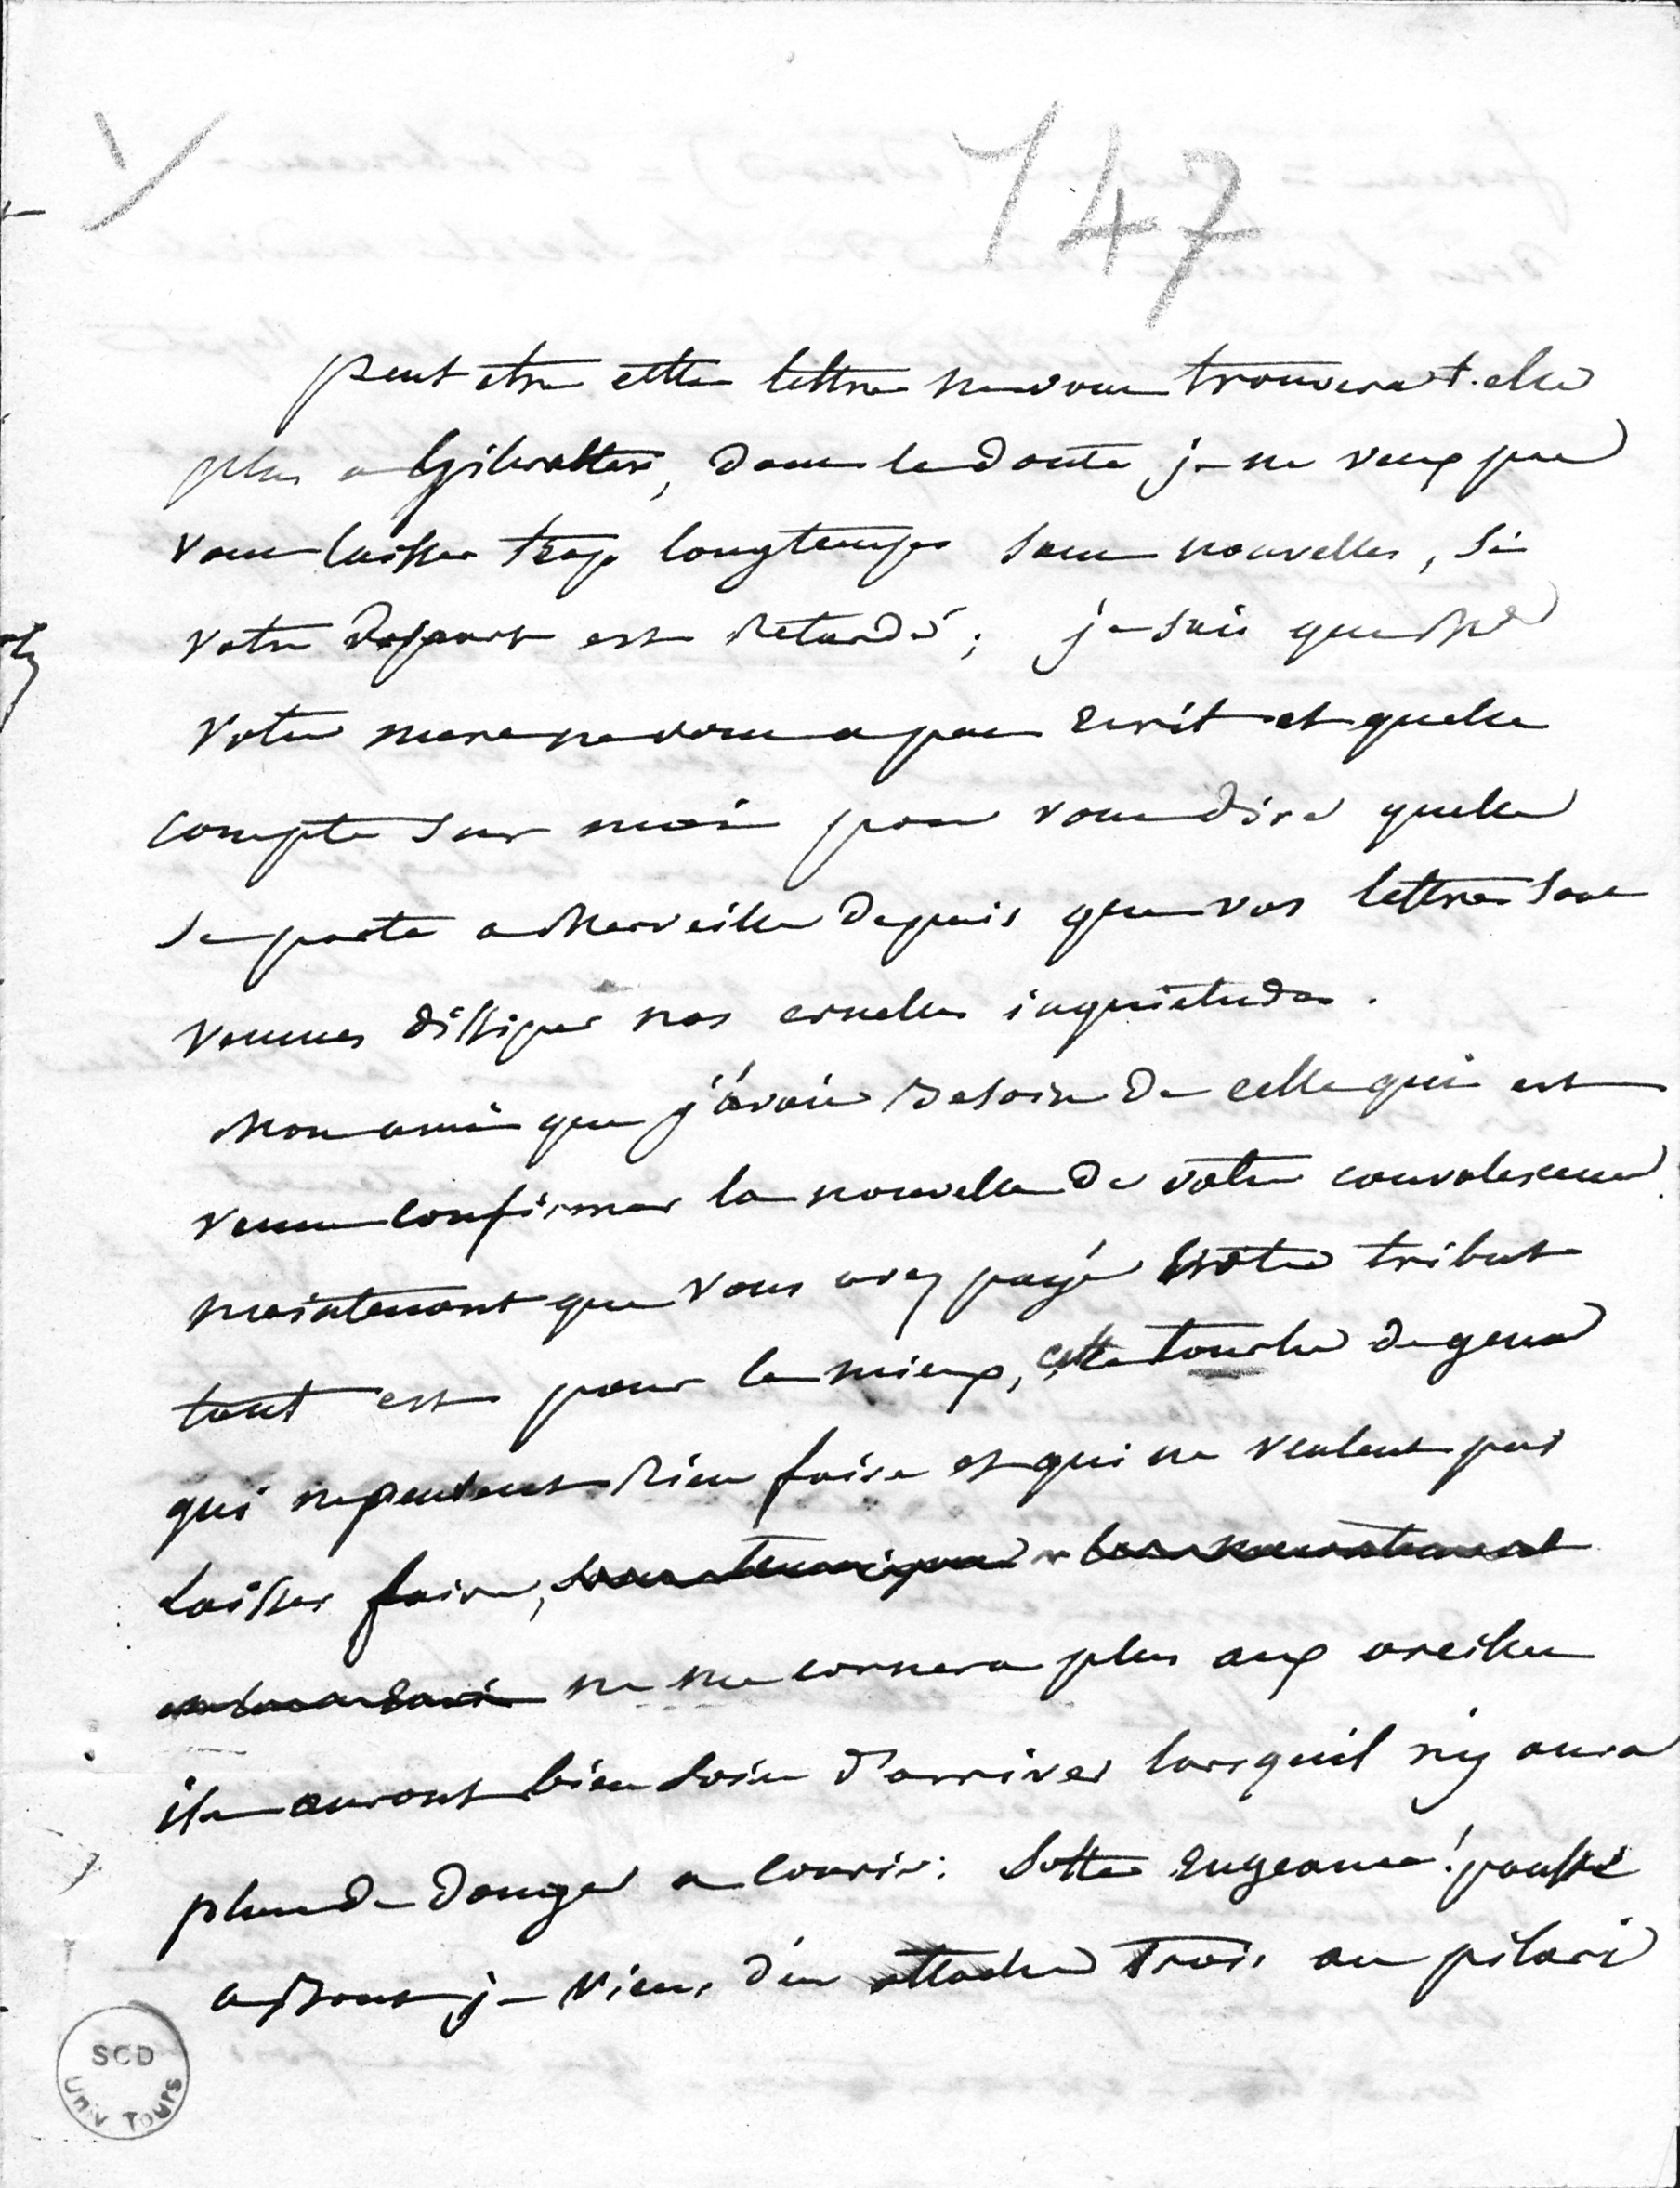 147
peut etre cette lettre ne vous trouvera t.elle
plus a Gibraltar, dans le doute je ne veux pas
vous laisser trop longtemps sans nouvelles, si
votre depart est retardé; je sais que Md
votre mere ne vous a pas ecrit et quelle
compte sur moi pour vous dire quelle
se porte a merveille depuis que vos lettres sont
venues dissiper nos cruelles inquietudes.
Mon ami que j'avais besoin de celle qui est
venue confirmer la nouvelle de votre convalescence
maintenant que vous avez payé votre tribut
tout est pour le mieux, cette tourbe de gens
qui ne peuvent rien faire et qui ne veulent pas
laisser faire,
ne me cornera plus aux oreilles
ils auront bien soin d'arriver lorsquil n'y aura
plus de danger a courir: Sotte engeance! poussé
a bout je viens d'en attacher trois au pilori
SCD
Univ Tours